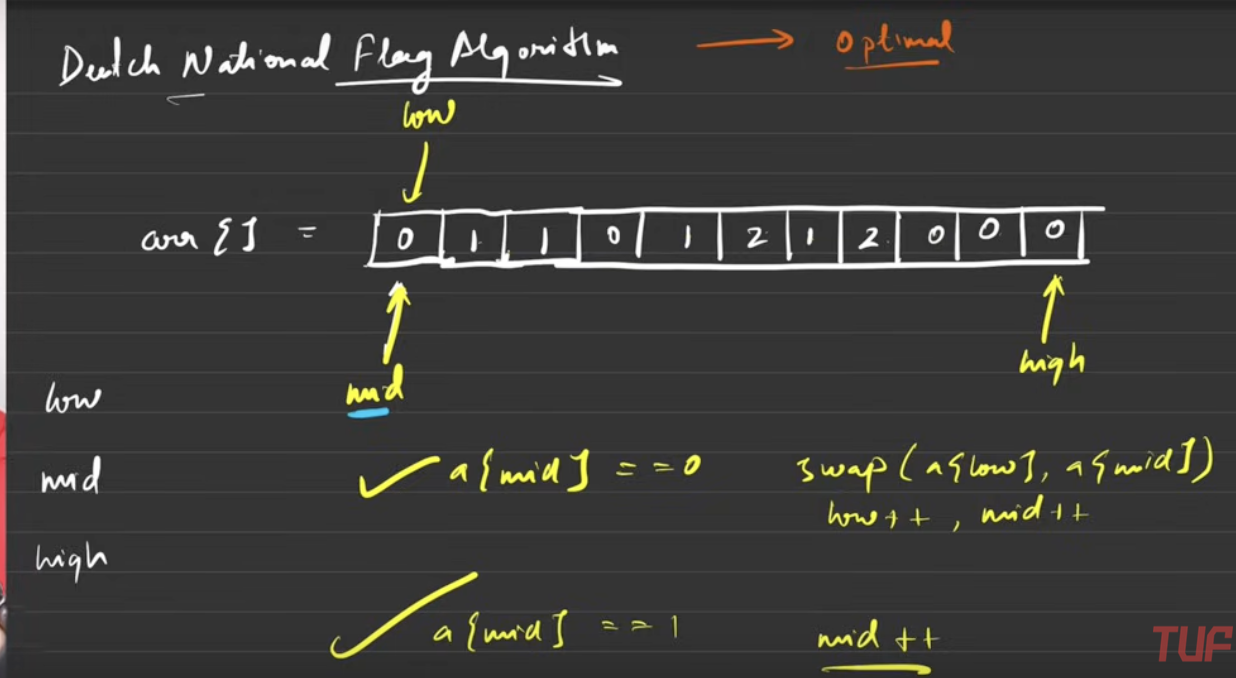 Dutch National Flag Algorithm → Optimal
low
arr[] = 0 1 1 0 1 2 1 2 0 0 0
high
low mid
mid a[mid] == 0 swap(a[low], a[mid])
low++, mid++
high
a[mid] == 1 mid++
TUF